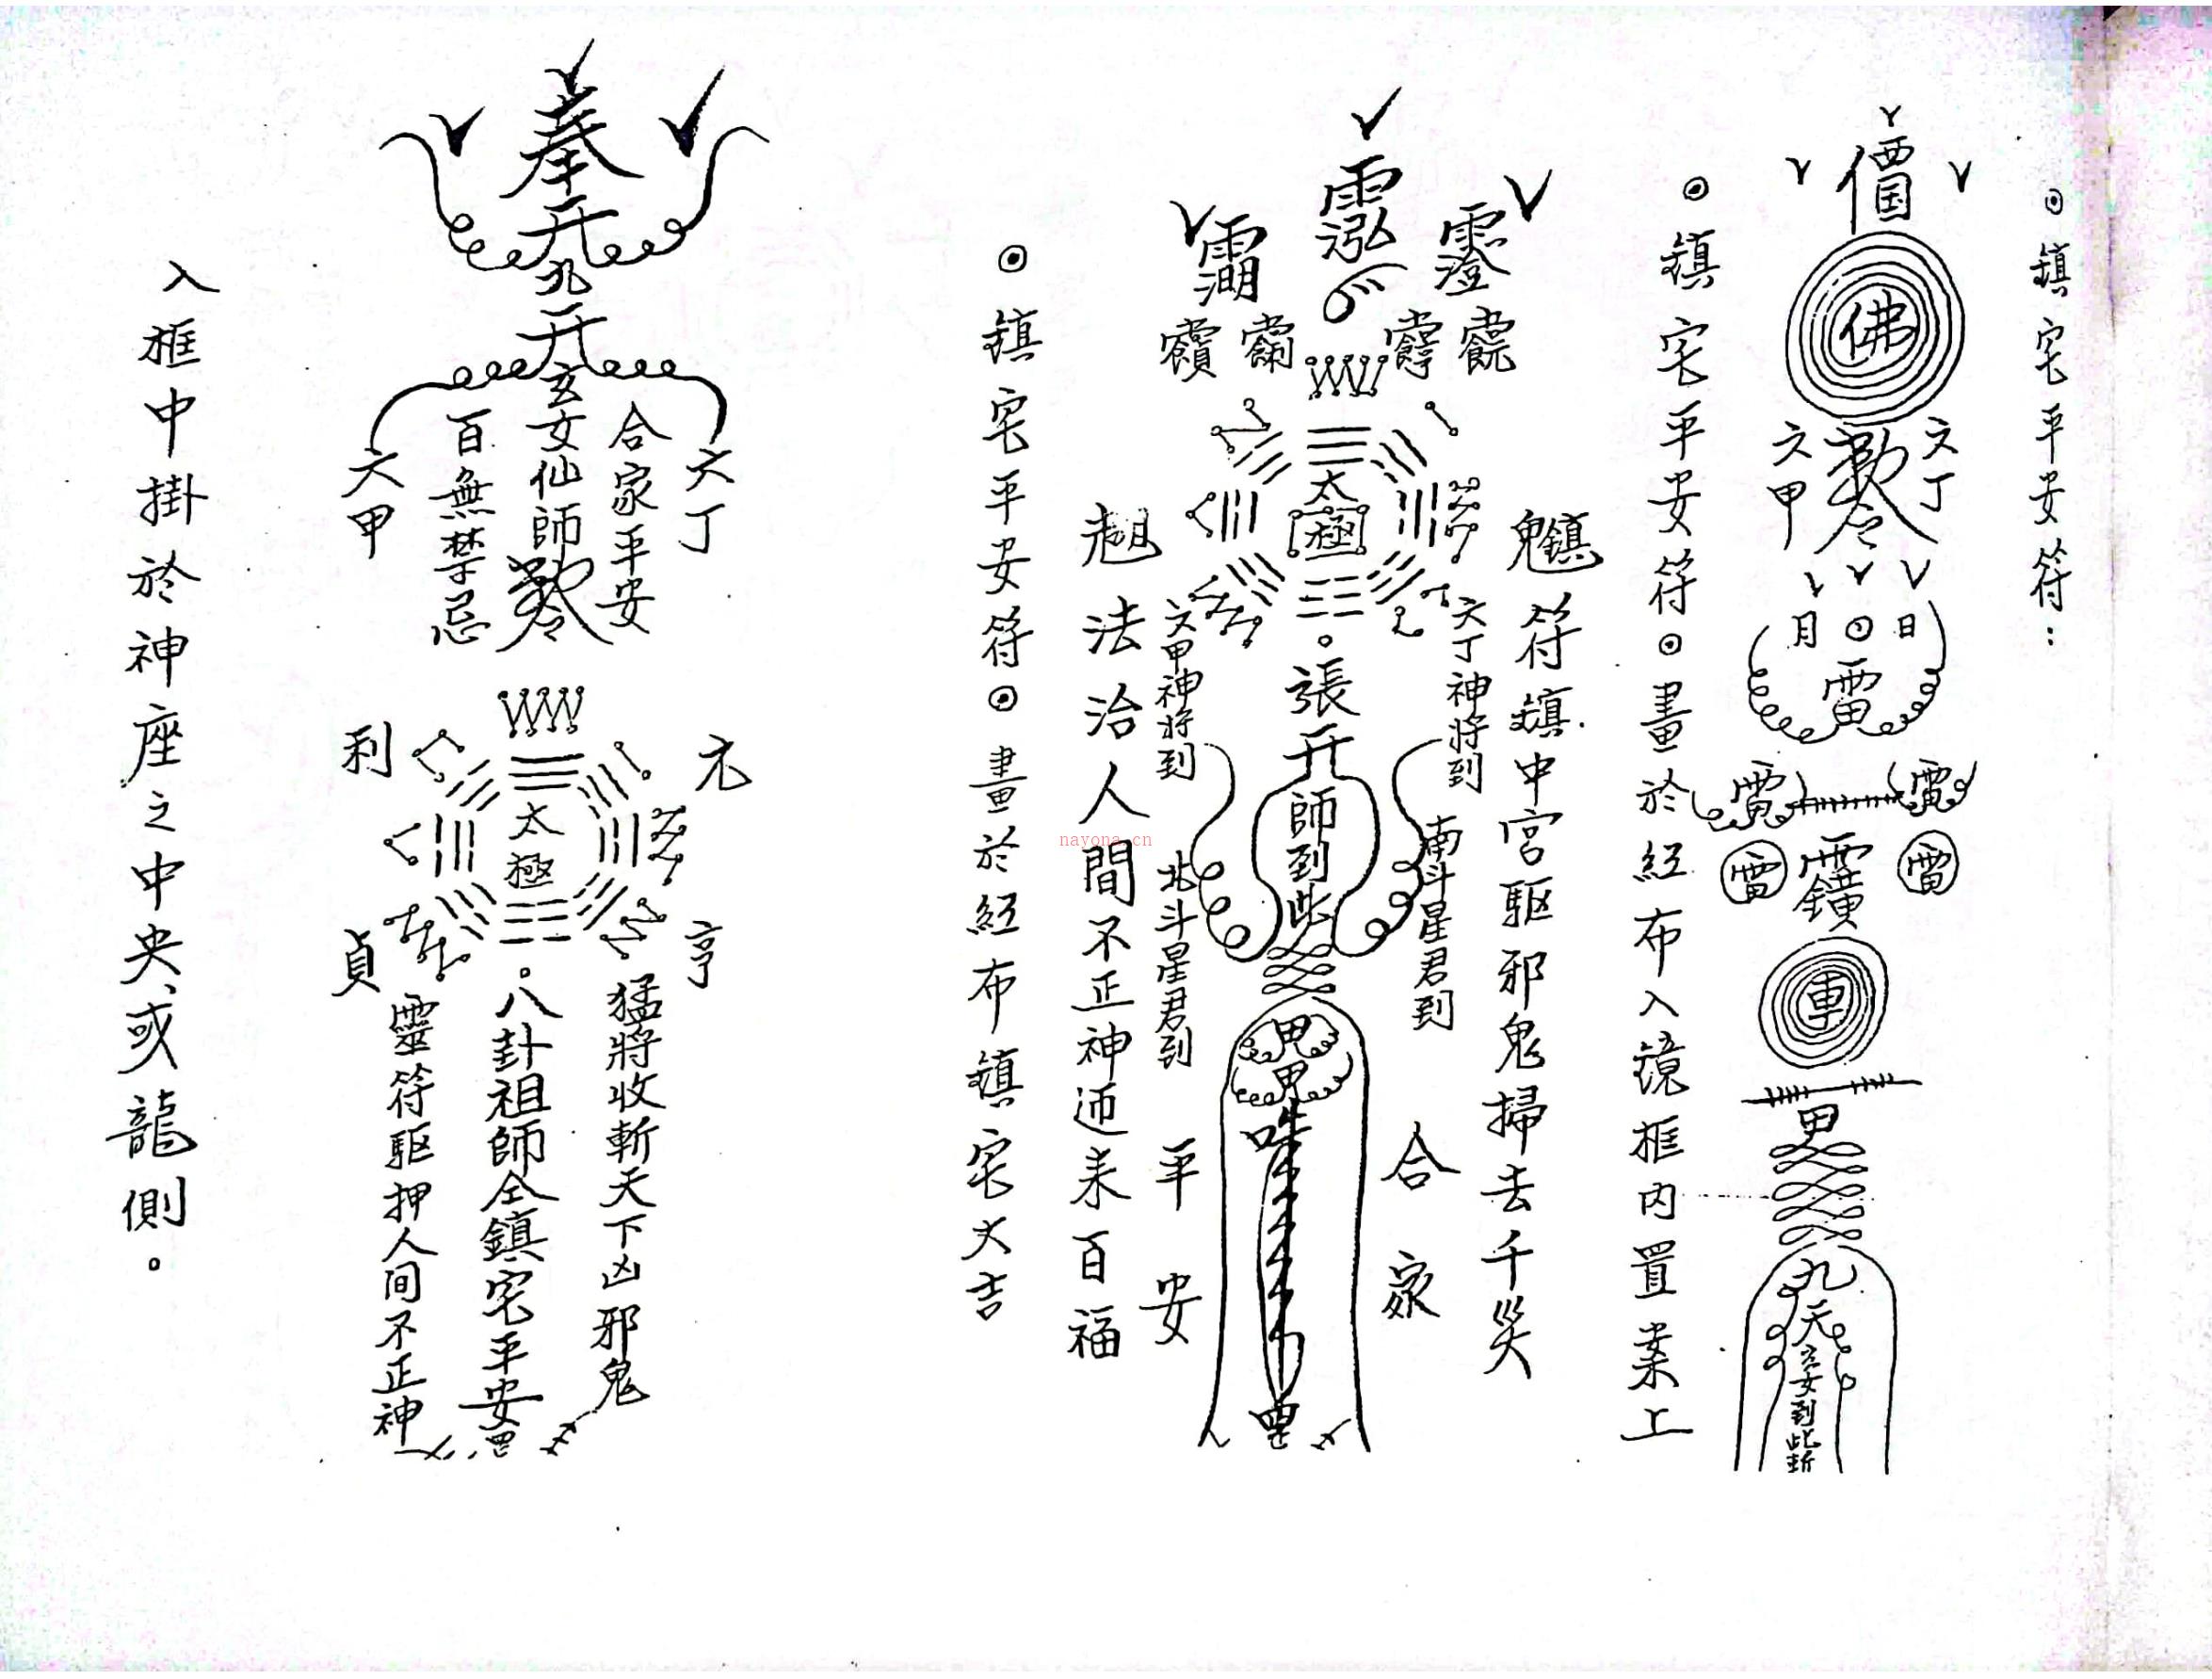 ⊙鎮宅平安符：
佛
六丁
六甲
日
月
雷
雷
雷
甲
九天玄女到此斬
⊙鎮宅平安符⊙畫於紅布入鏡框內置案上
太極
符鎮中宮驅邪鬼掃去千災
六丁神將到
南斗星君到
合家
張天師到此
六甲神將到
北斗星君到
平安
法治人間不正神迊来百福
⊙鎮宅平安符⊙畫於紅布鎮宅大吉
奉
九天玄女仙師
六丁
合家平安
百無禁忌
六甲
元
亨
利
貞
太極
猛將收斬天下凶邪鬼
八卦祖師仝鎮宅平安罡
靈符驅押人间不正神
入框中掛於神座之中央、或龍側。
nayona.cn